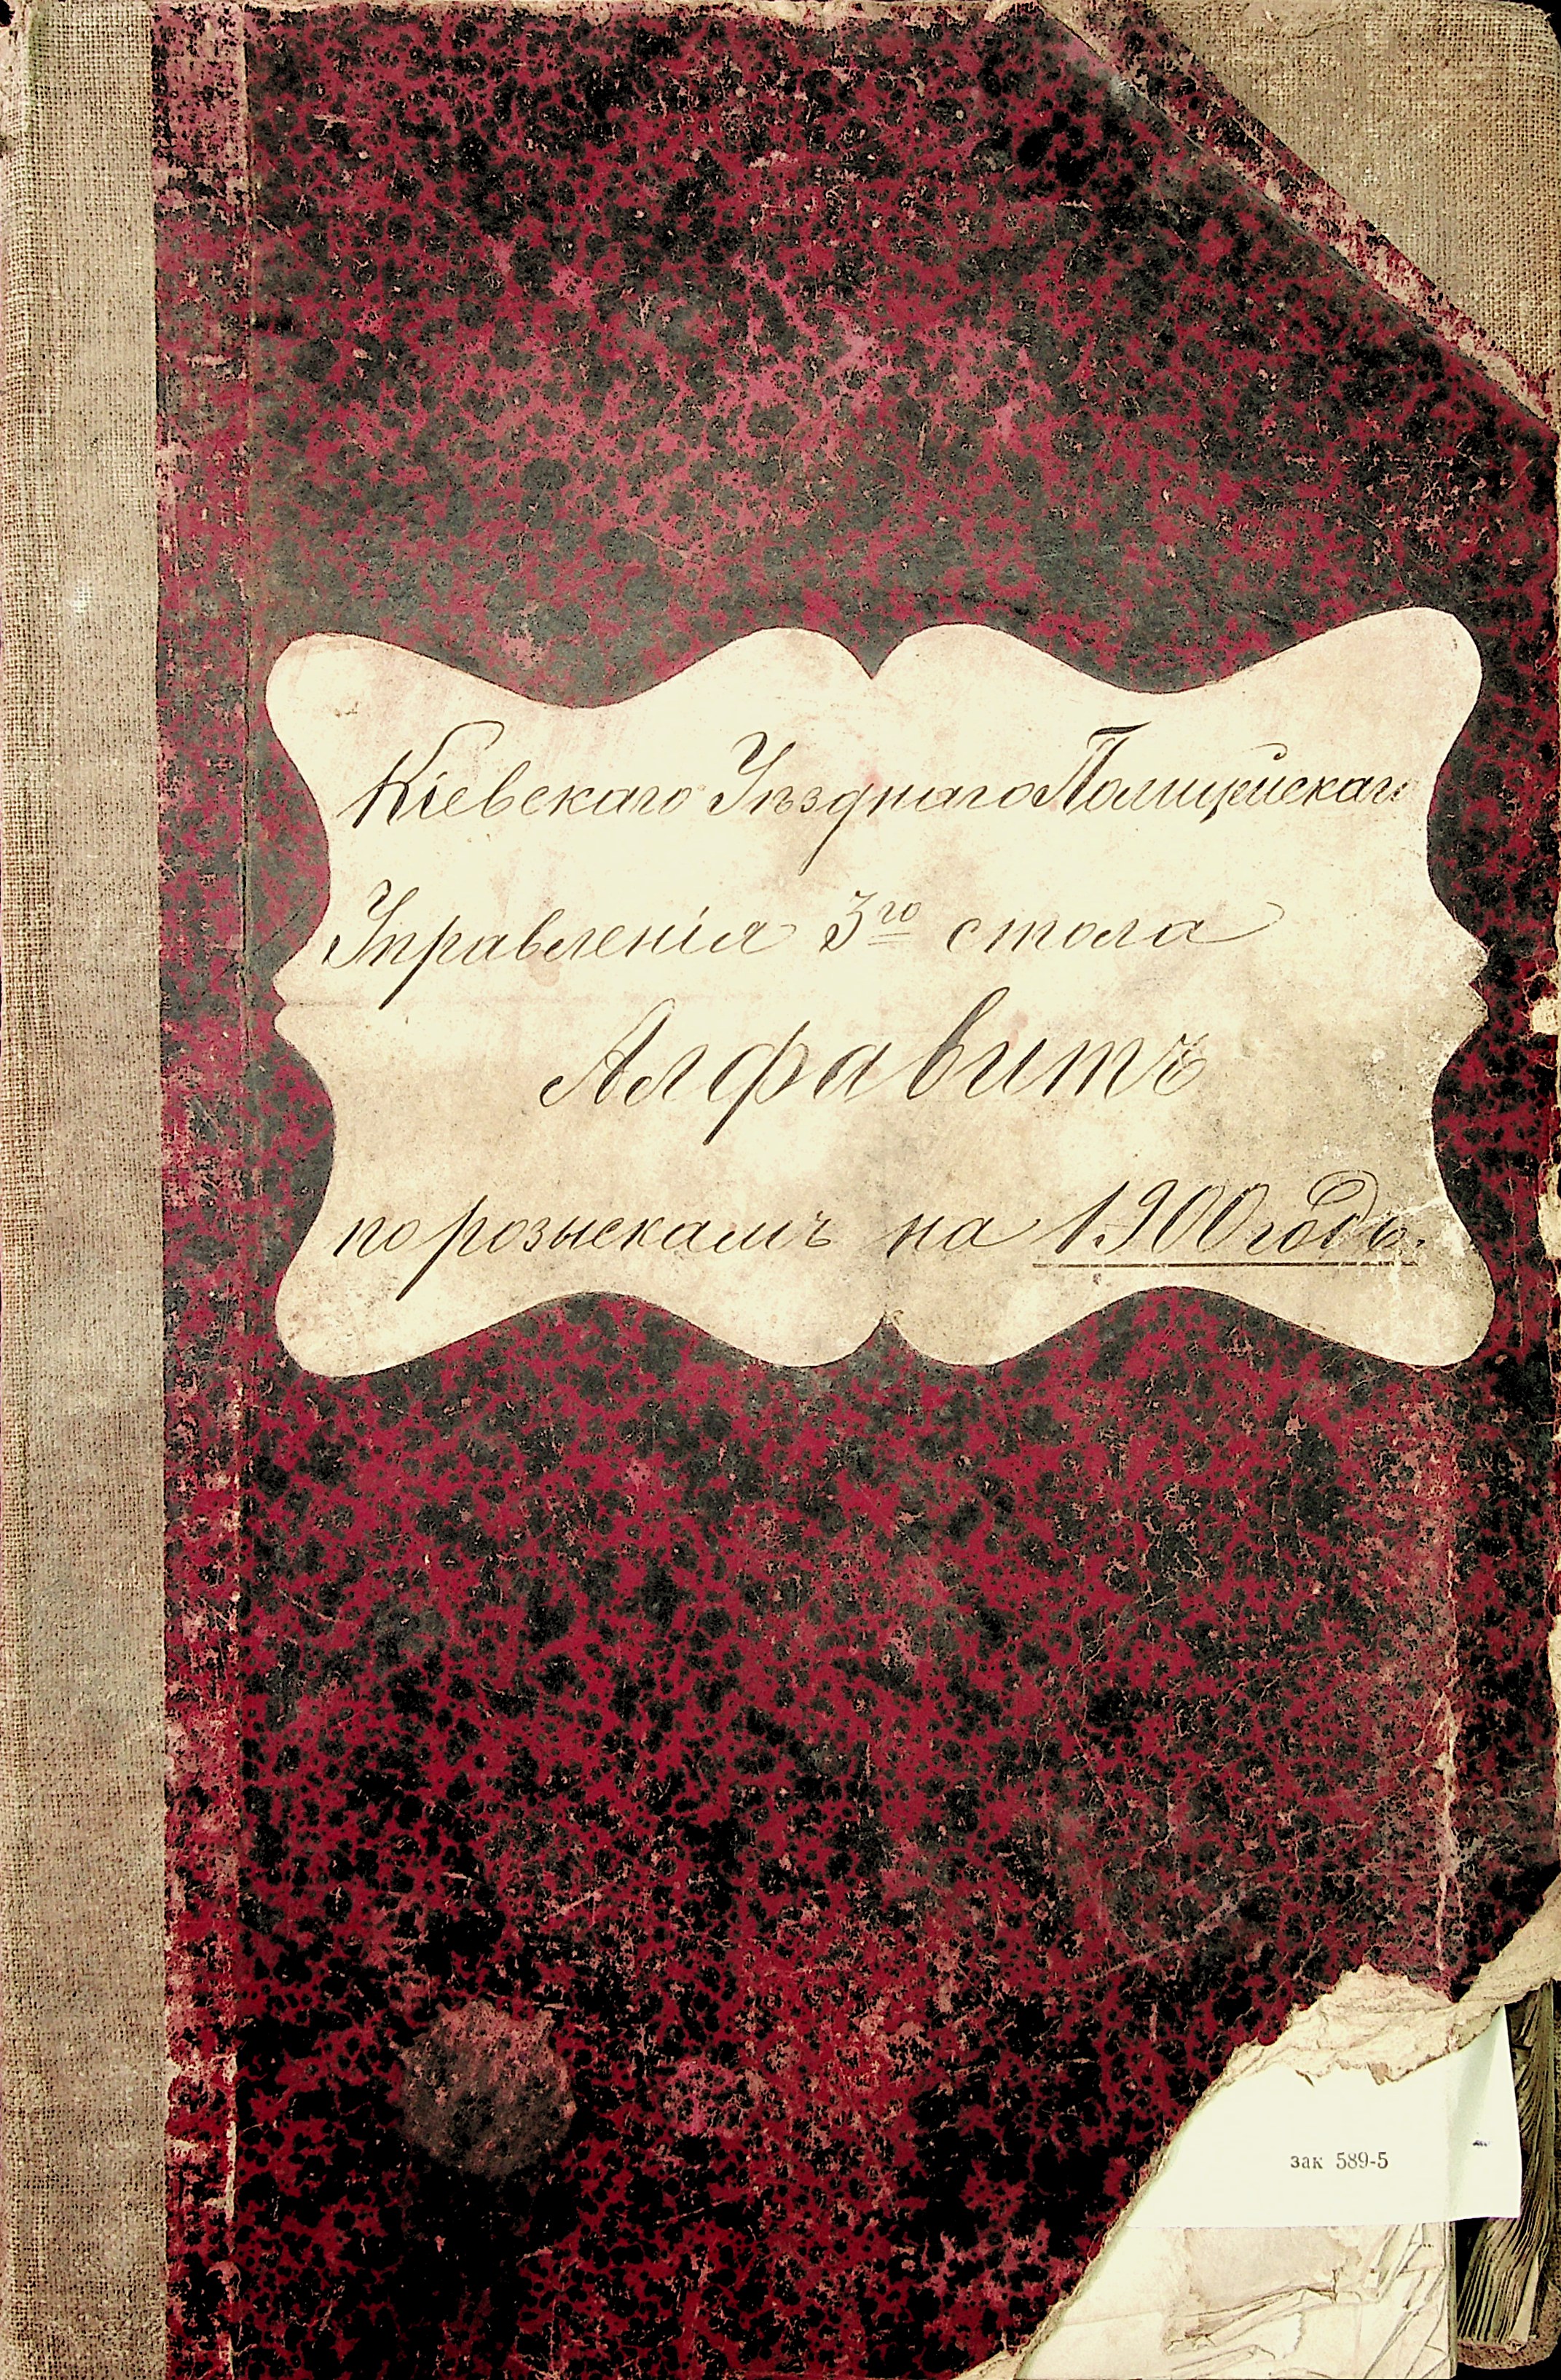 Кіевскаго Уѣзднаго Полицейскаго
Управленія 3го стола
Алфавитъ
по розыскамъ на 1900 годъ.
зак 589-5